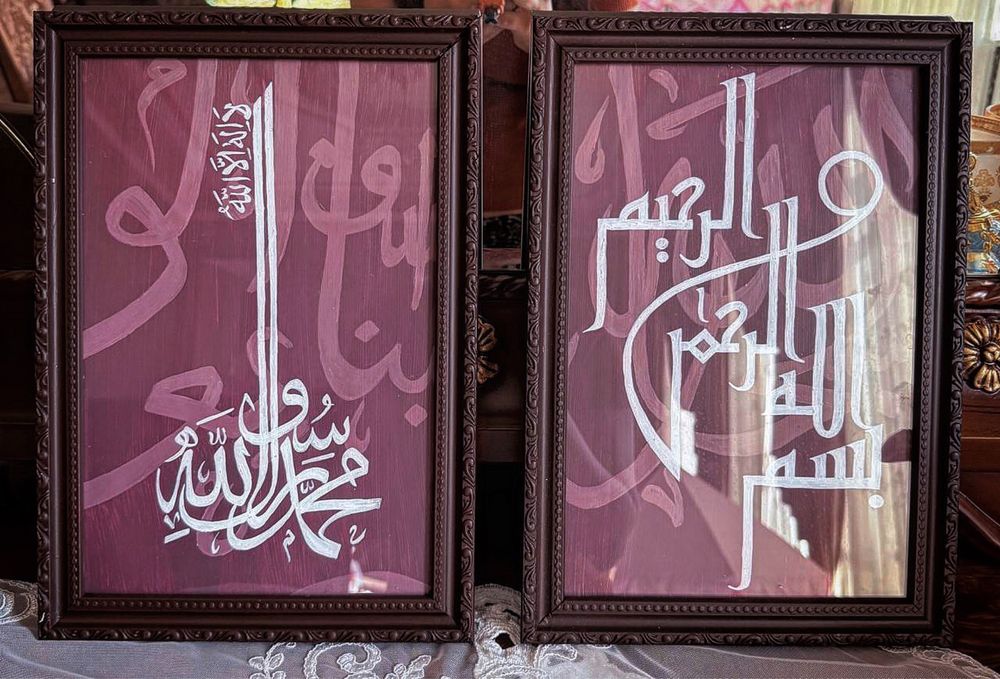 لا إله إلا الله
محمد رسول الله
بسم
الله
الرحمن
الرحيم